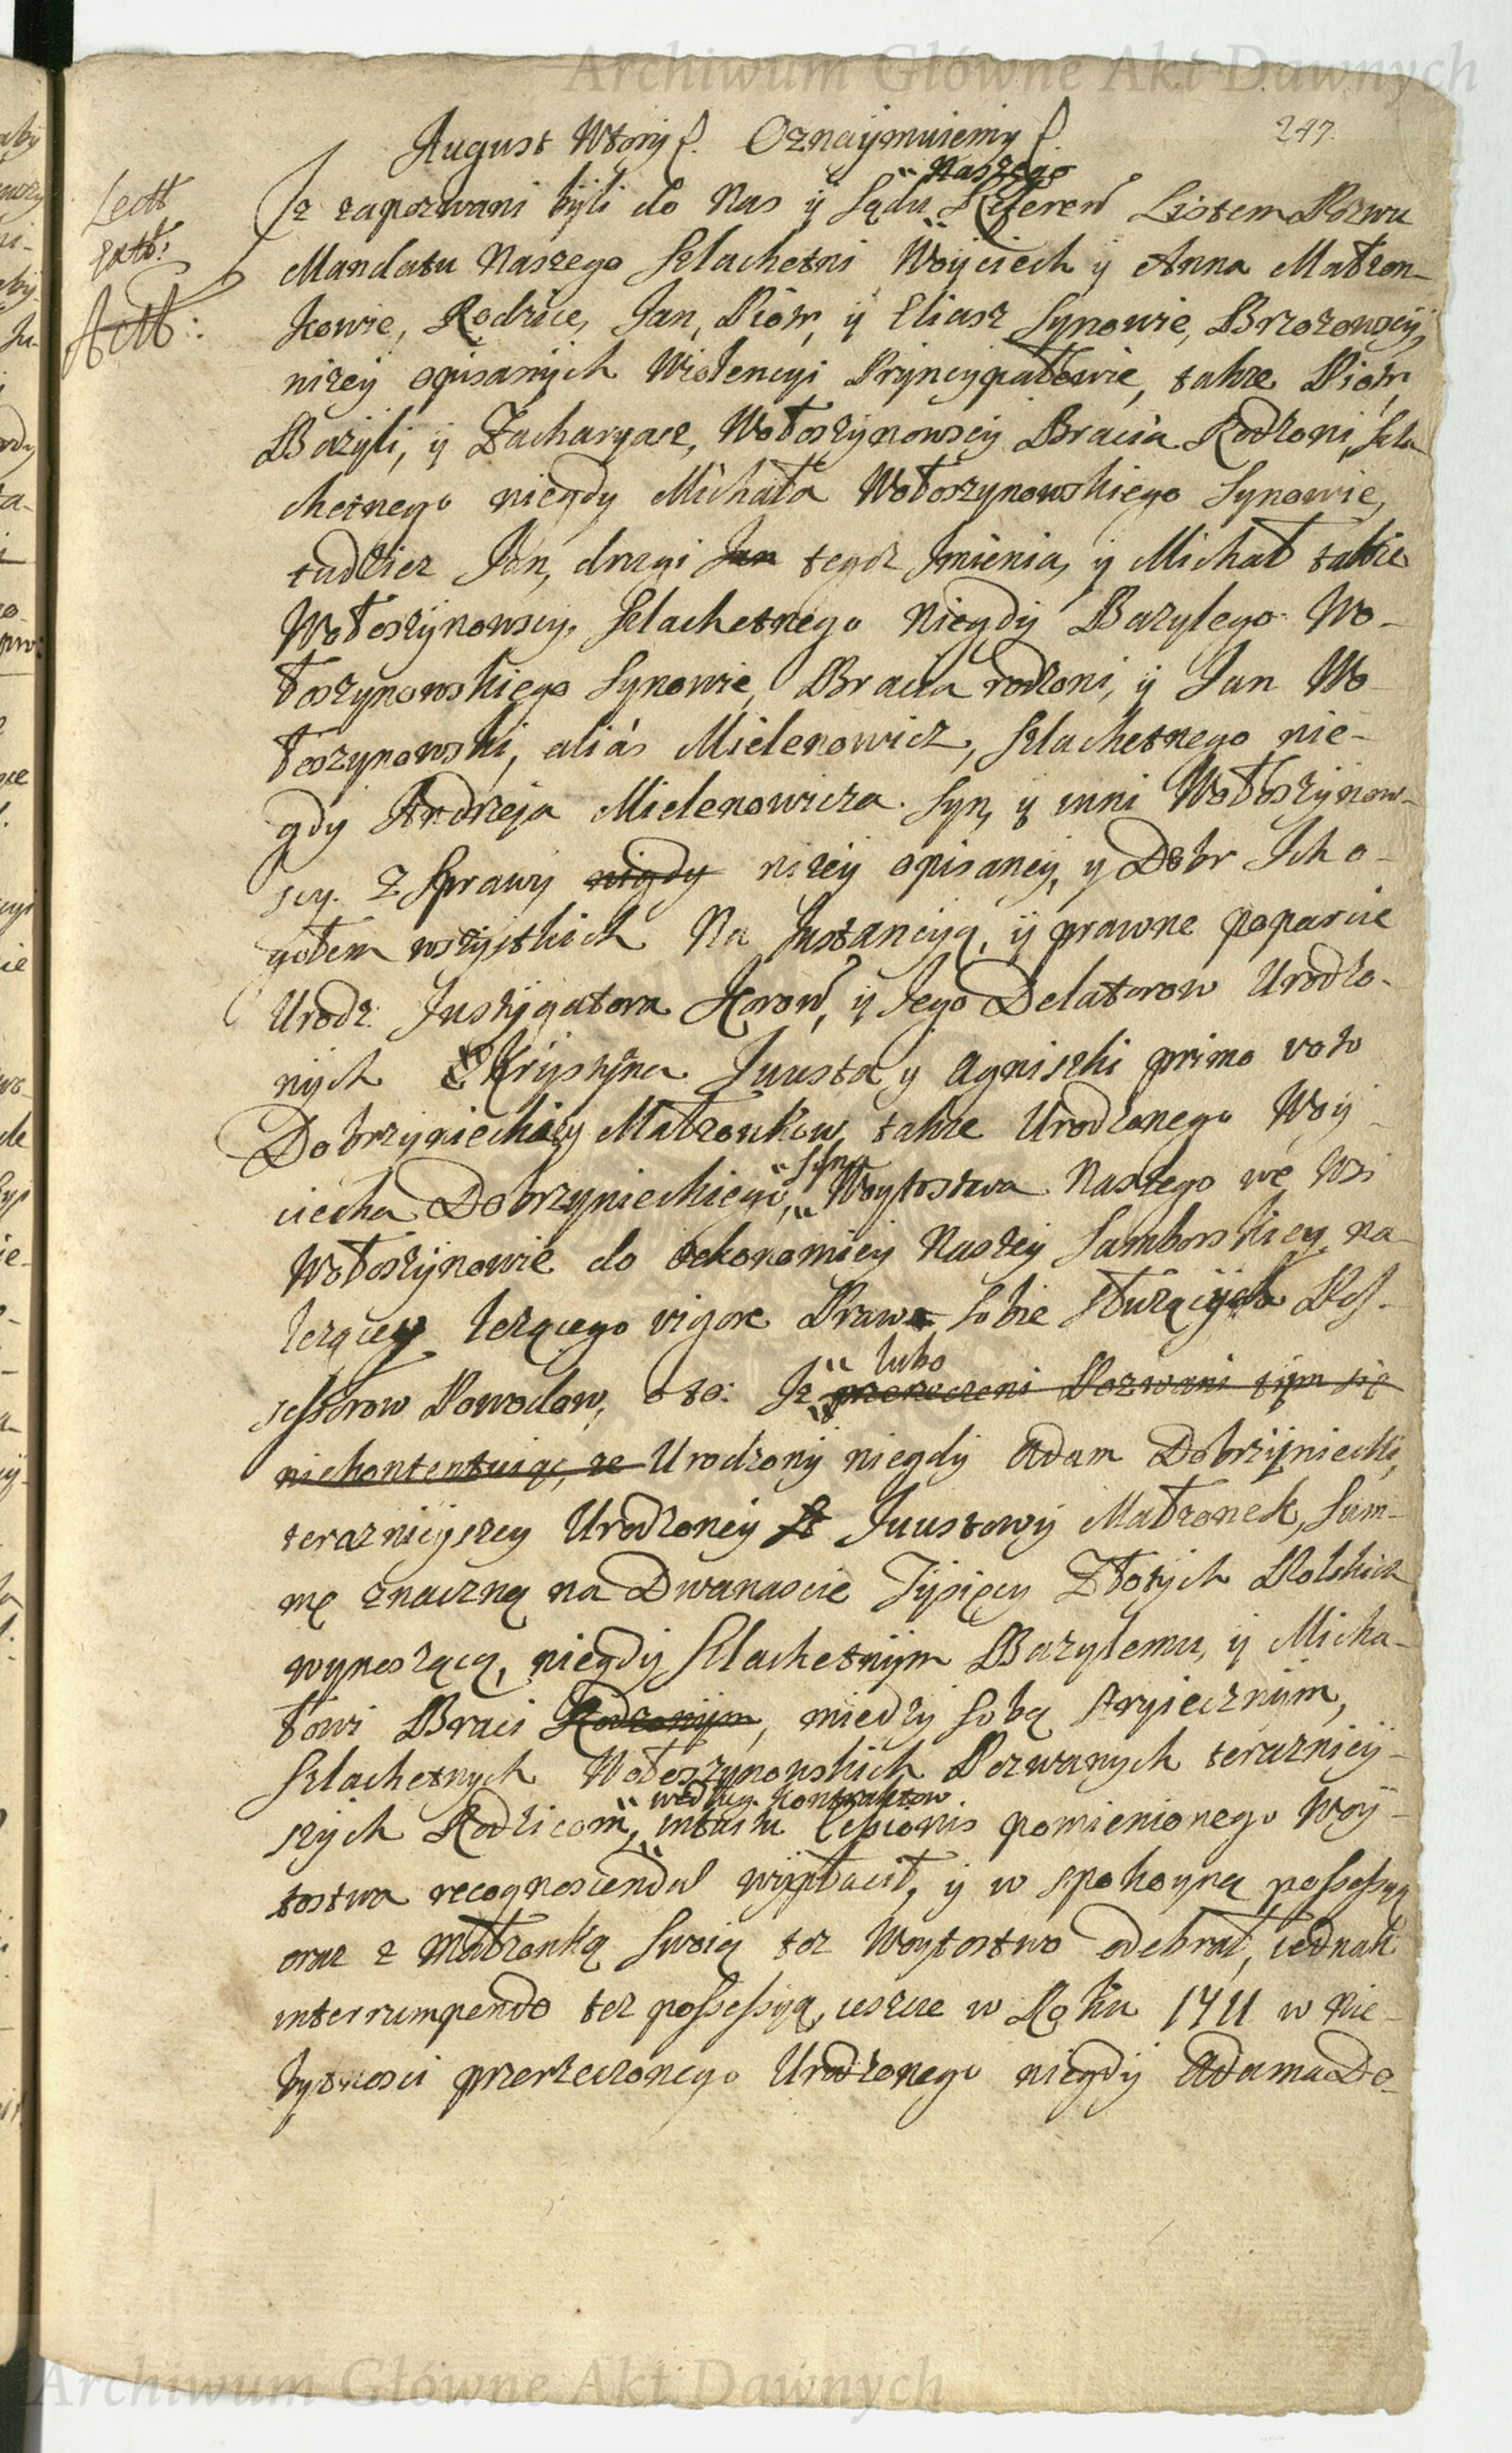 Archiwum Główne Akt Dawnych
247.
August Wtóry etc. Oznaymuiemy etc.
Naszego
Lectt
extt:
Actt:
Iz zapozwani byli do Nas y Sądu Referen Listem Pozwu
Mandatu Naszego Szlachetni Woyciech y Anna Małzon-
kowie, Rodzice, Jan, Piotr, y Eliasz Synowie, Brzozowscy,
nizey opisanych Wiolencyi Pryncypałowie, takze Piotr,
Bazyli, y Zacharyasz, Wołoszynowscy Bracia Rodzoni, Szla
chetnego niegdy Michała Wołoszynowskiego Synowie,
tudziez Jan, drugi Jan tegoz Imienia, y Michał takze
Wołoszynowscy, Szlachetnego Niegdy Bazylego Wo-
łoszynowskiego Synowie, Bracia rodzoni, y Jan Wo-
łoszynowski, aliàs Mielenowicz, Szlachetnego nie-
gdy Andrzeja Mielenowicza Syn, y inni Wołoszynow-
scy. Z Sprawy nigdy nizey opisaney, y Dobr Ich o-
gołem wszystkich Na Instancyą, y prawne poparcie
Urodz. Instygatora Koron, y Jego Delatorow Urodzo-
nych Krystyna Juusta y Agniszki primo voto
Dobrzynieckiey Małzonkow, takze Urodzonego Woy-
Syna
ciecha Dobrzynieckiego, Woytostwa Naszego we Wsi
Wołoszynowie do oekonomiey Naszey Samborskiey na-
lezącey lezącego vigore Prawa Sobie słuzących Pos-
lubo
sessorow Powodow, o to: Iz przerzeczeni Pozwani tym się
niekontentuiąc, ze Urodzony niegdy Adam Dobrzyniecki,
teraznieyszey Urodzoney Juustowy Małzonek, Sum-
mę znaczną na Dwanascie Tysięcy Złotych Polskich
wynoszącą, niegdy Szlachetnym Bazylemu, y Micha-
łowi Braci Rodzonym, miedzy sobą stryiecznym,
Szlachetnych Wołoszynowskich Pozwanych terazniey-
według kontraktow
szych Rodzicom, intuitu Cessionis pomienionego Woy-
tostwa recognoscendae wypłacił, y w spokoyną possessyą
oraz z Małzonką Swoią toz Woytostwo odebrał, iednak
interrumpendo tez possessyą, ieszcze w Roku 1711 w nie-
bytnosci przerzeczonego Urodzonego niegdy Adama Do-
Archiwum Główne Akt Dawnych